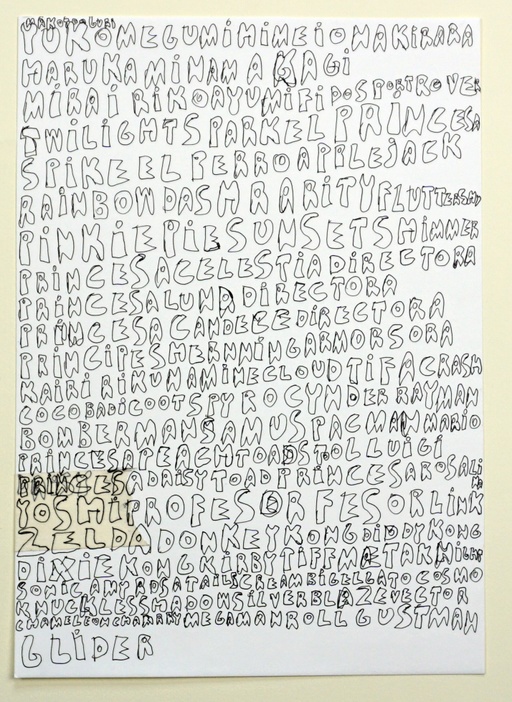 YUKOMEGUMIHIMEIONAKIRARA
HARUKAMINAMIAKAGI
MIRAIRIKOAYUMIFIDOSPORTROVER
TWILIGHTSPARKELPRINCESA
SPIKEELPERROAPPLEJACK
RAINBOWDASHRARITYFLUTTERSHY
PINKIEPIESUNSETSHIMMER
PRINCESACELESTIADIRECTORA
PRINCESALUNADIRECTORA
PRINCESACANDECEDIRECTORA
PRINCIPESHERNNINGARMORSORA
KAIRIRIKUNAMINECLOUDTIFACRASH
COCOBADICOOTSPYROCYNDERRAYMAN
BOMBERMANSAMUSPACMANMARIO
PRINCESAPEACHTOADSTOLLUIGI
PRINCESADAISYTOADPRINCESAROSALINA
YOSHIPROFESORFESORLINK
ZELDADONKEYKONGDIDDYKONG
DIXIEKONGKIRBYTIFF
SONICAMYROSATAILSCREAMBIGELGATOCOSMO
KNUCKLESSHADOWSILVERBLAZEVECTOR
MEGAMANROLLGUSTMAN
GLIDER